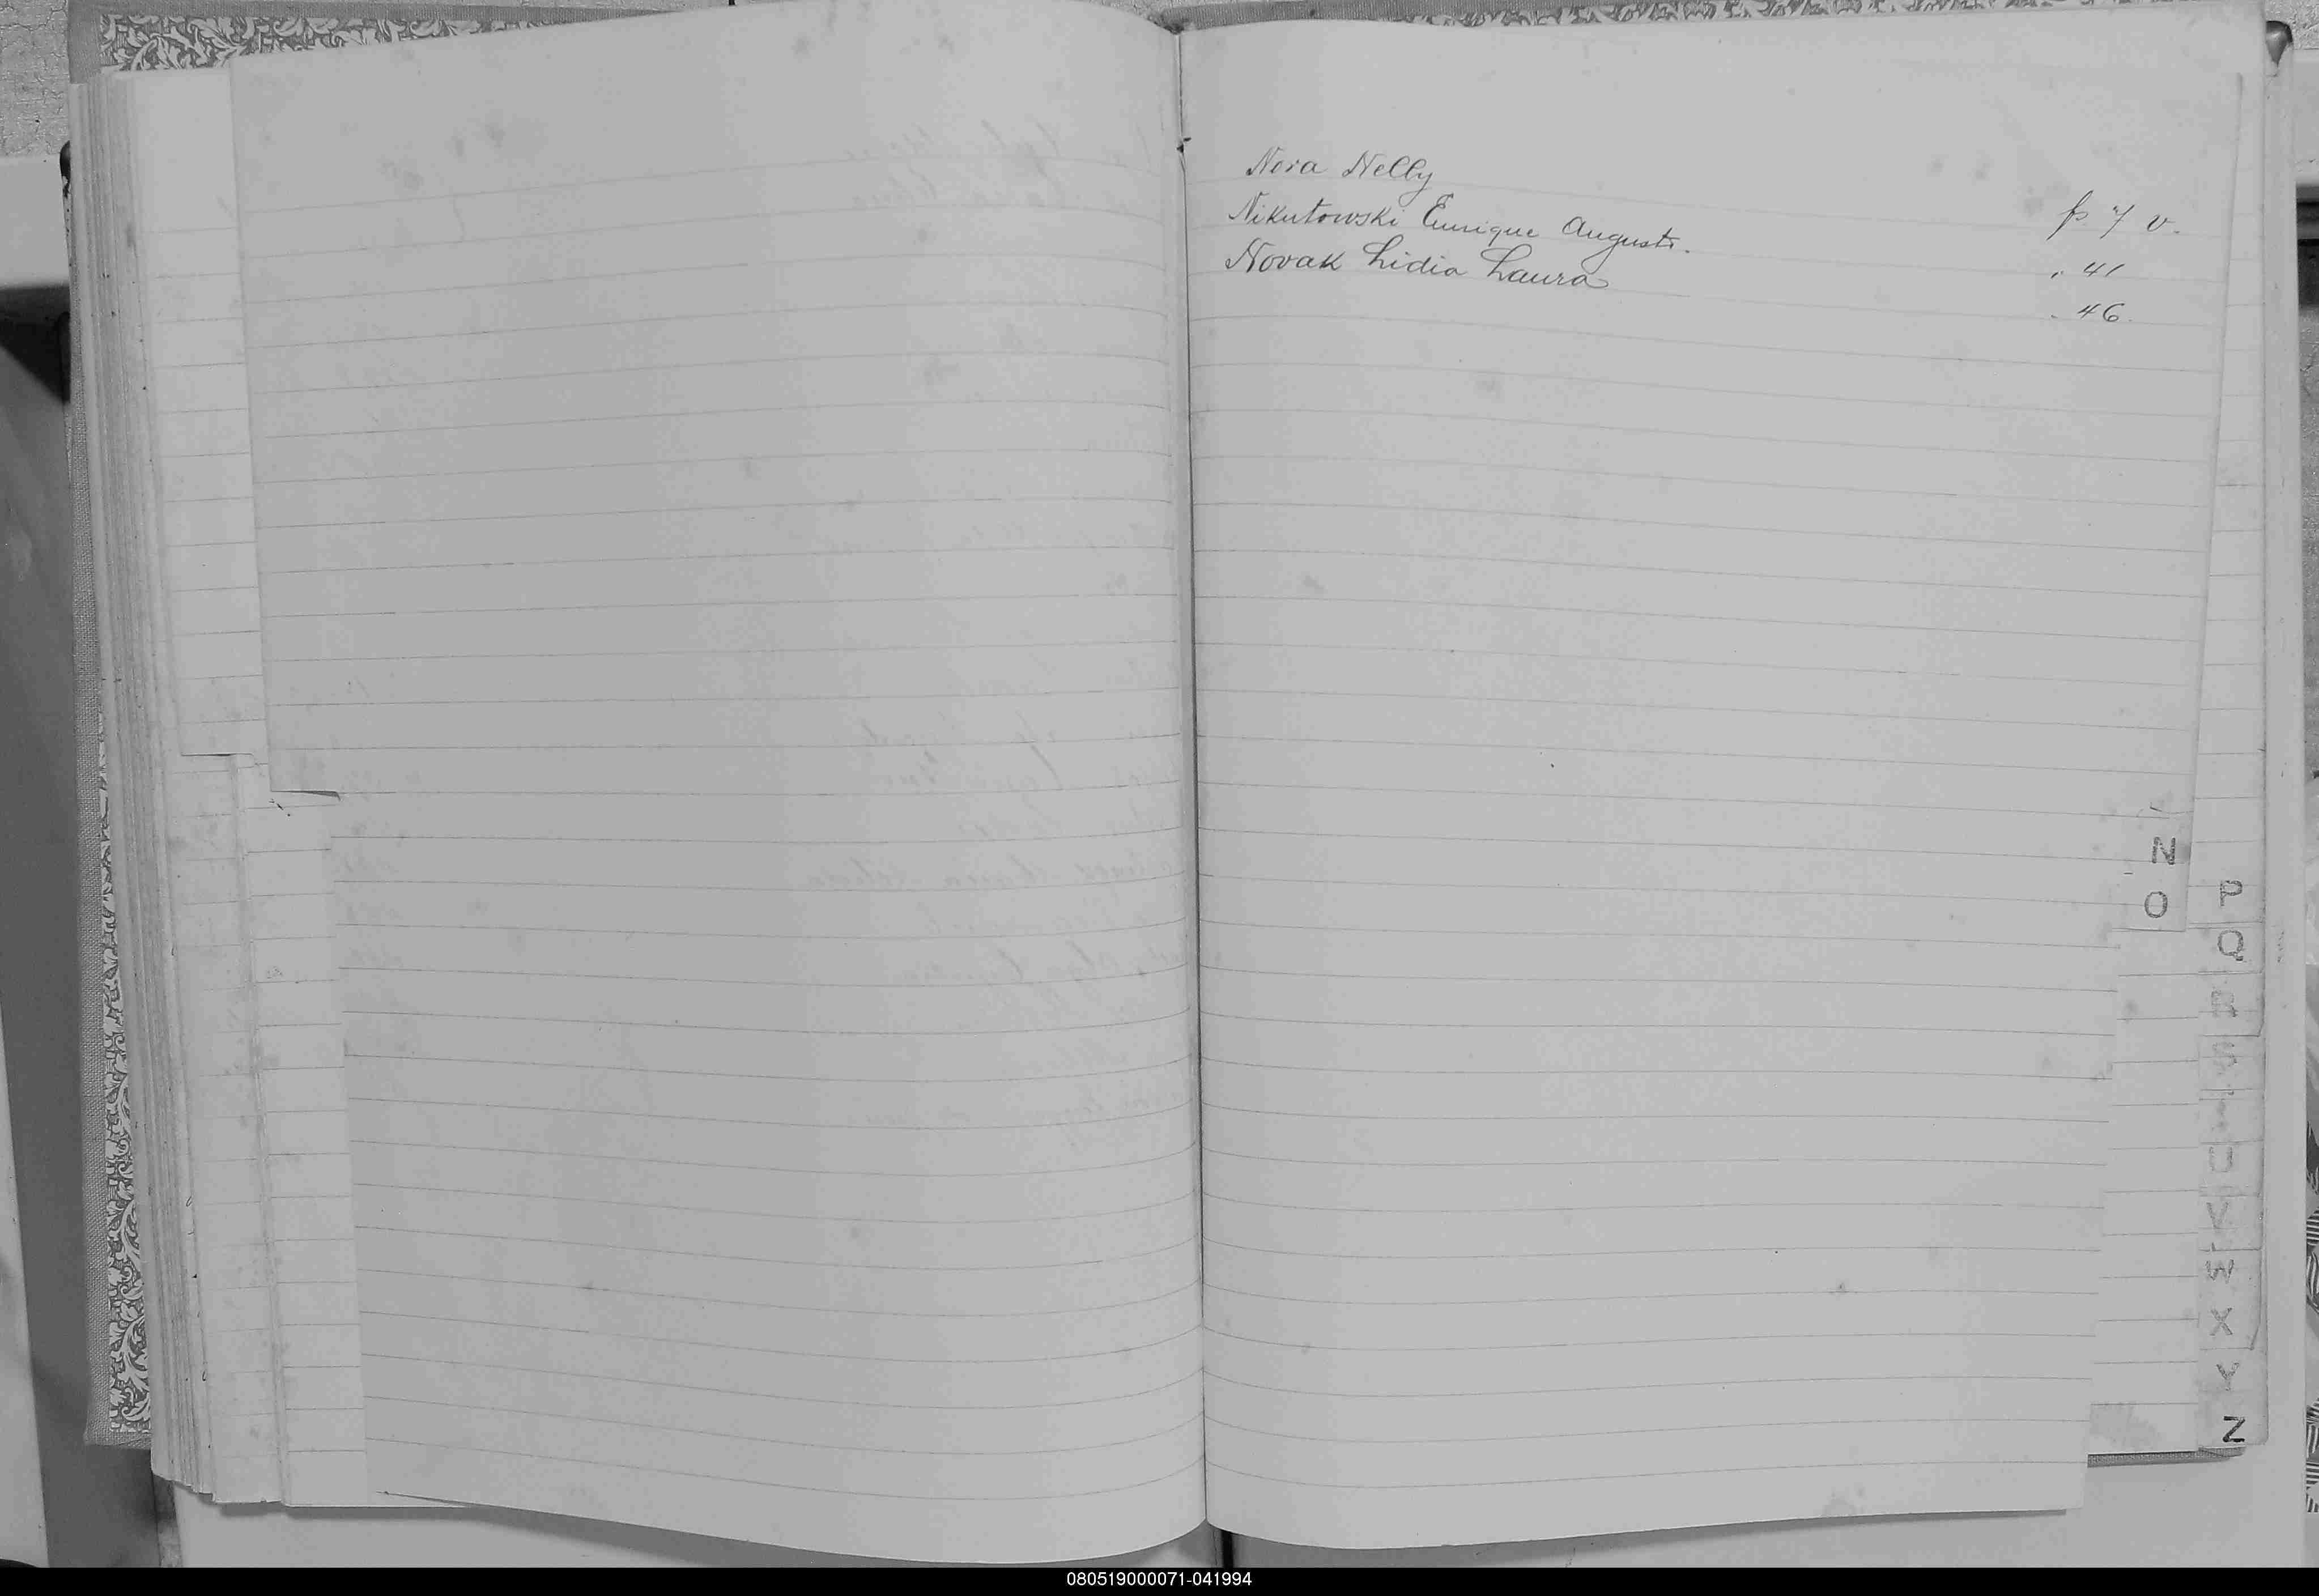 Nora Nelly fs 7 v.
Nikutowski Enrique Augusto. " 41
Novak Lidia Laura " 46
N
O
P
Q
R
S
U
V
W
X
Y
Z
080519000071-041994